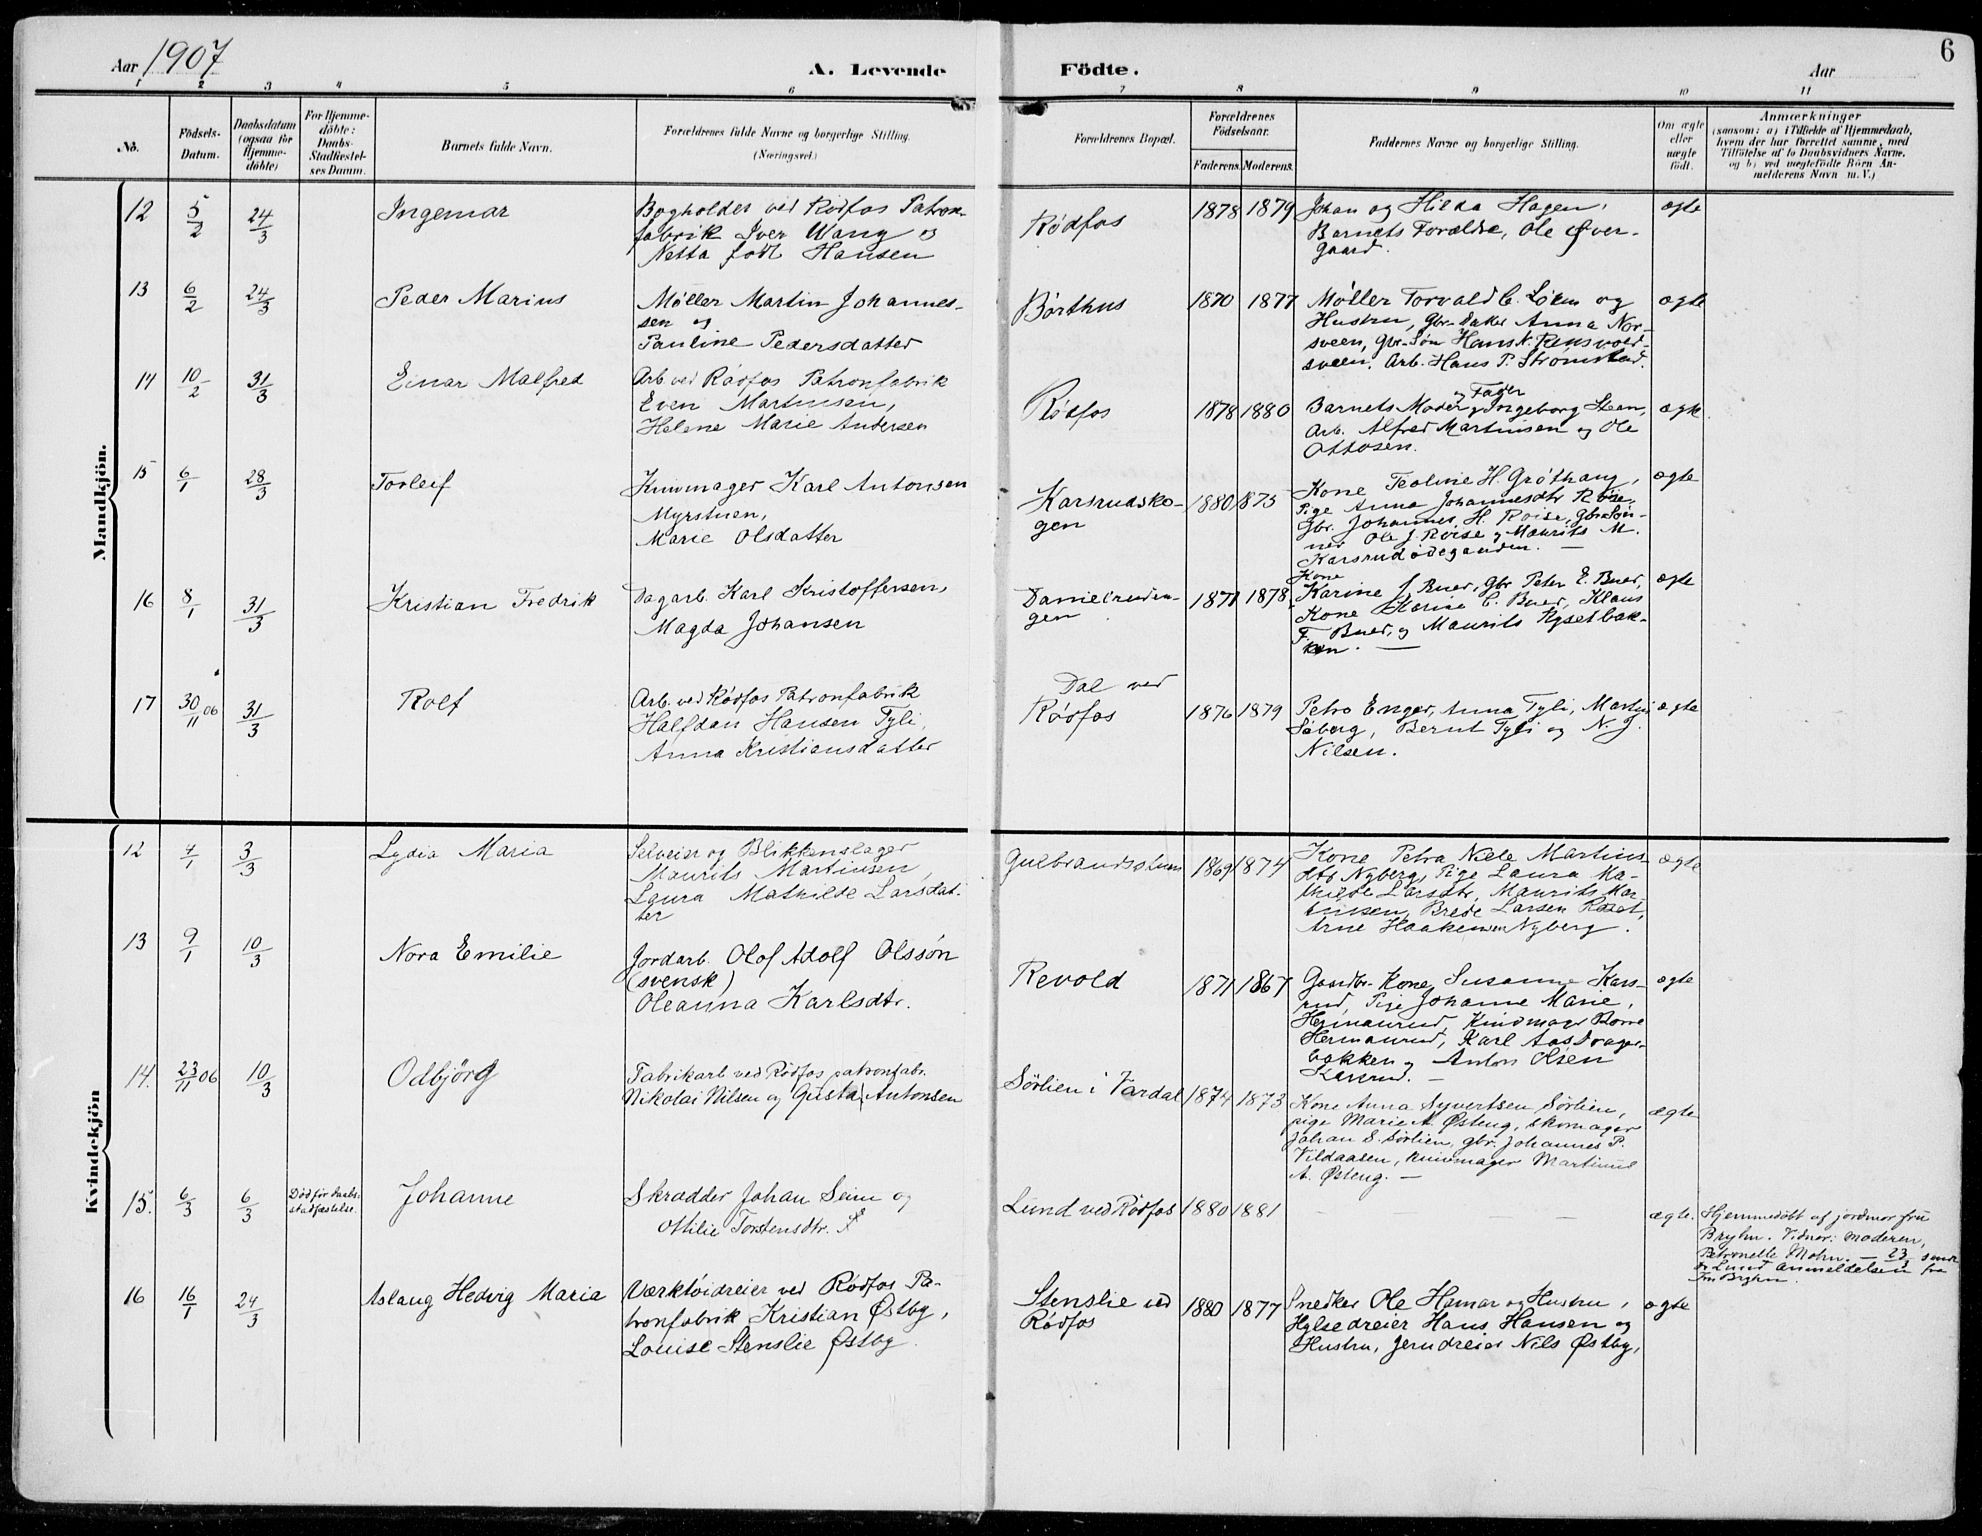 6
Aar 1907
A. Levende Födte.
Aar
1 2 3 4 5 6 7 8 9 10 11
No.
Födsels-
Datum.
Daabsdatum
(ogsaa for
Hjemme-
döbte)
For Hjemme-
döbte:
Daabs-
Stadfæstel-
ses Datum.
Barnets fulde Navn.
Forældrenes fulde Navne og borgerlige Stilling.
(Næringsvei.)
Forældrenes Bopæl.
Forældrenes
Födselsaar.
Faderens. Moderens.
Faddernes Navne og borgerlige Stilling.
Om ægte
eller
uægte
födt.
Anmærkninger
(saasom: a) i Tilfælde af Hjemmedaab,
hvem der har forrettet samme, med
Tilföielse af to Daabsvidners Navne,
og b) ved uægtefödte Börn An-
melderens Navn m. V.)
Mandkjön.
12 5/2 24/3 Ingemar
Bogholder ved Rødfos Patron-
fabrik Iver Wang og
Netta født Hansen
Rødfos 1878 1879
Johan og Hilda Hagen,
Barnets Forældre, Ole Øver-
gaard.
ægte
13 6/2 24/3 Peder Marius
Møller Martin Johannes-
sen og
Pauline Pedersdatter
Börthus 1870 1877
Møller Torvald C. Løken og
Hustru, Gbr-Datter Anna Nor-
sveen, Gbr-Søn Hans N. Rensvold-
sveen, Arb. Hans P. Strømstad.
ægte
14 10/2 31/3 Einar Malfred
Arb ved Rødfos Patronfabrik
Even Martinsen,
Helene Marie Andersen
Rødfos 1878 1880
og Fader
Barnets Moder, Ingeborg Steen,
Arb. Alfred Martinsen og Ole
Ottosen.
ægte
15 6/1 28/3 Torleif
Knivmager Karl Antonsen
Myrstuen,
Marie Olsdatter
Karsrudsko-
gen
1880 1875
Kone Teoline H. Grøthaug,
Pige Anna Johannesdtr Røise,
Gbr. Johannes H. Røise, Gbr Søn-
ner Ole J. Røise og Maurits M.
Karsrudødegaarden. —
ægte
16 8/1 31/3 Kristian Fredrik
Dagarb. Karl Kristoffersen,
Magda Johansen
Danielruden-
gen
1871 1878
Kone
Karine J. Buer, Gbr Peter E. Buer,
Kone Karine C. Buer, Klaus
F. Buer, og Maurits Nysetbak-
ken. —
ægte
17 30/11 06 31/3 Rolf
Arb. ved Rødfos Patronfabrik
Halfdan Hansen Tyli,
Anna Kristiansdatter
Dal ved
Rødfos
1876 1879
Petro Enger, Anna Tyli, Martin
Søberg, Bernt Tyli og N. J.
Nilsen.
ægte
Kvindekjön
12 7/1 3/3 Lydia Maria
Selveier og Blikkenslager
Maurits Martinsen,
Laura Mathilde Larsdat-
ter
Gulbrandsstuen 1869 1874
Kone Petra Niele Martins-
dtr Nyberg, Pige Laura Ma-
thilde Larsdtr, Maurits Mar-
tinsen, Brede Larsen Roset,
Arne Haakensen Nyberg.
ægte
13 9/1 10/3 Nora Emilie
Jordarb. Olof Adolf Olssön
(svensk)
Oleanna Karlsdtr.
Revold 1871 1867
Gaardbr. Kone Susanne Kars-
rud, Pige Johanne Marie
Hermanrud, Knivmager Borre
Hermanrud, Karl Aas Drager-
bakken og Anton Olsen
Karsrud. —
ægte
14. 23/11 06 10/3 Odbjörg
Fabrikarb ved Rødfos patronfabr.
Nikolai Nilsen og Gusta Antonsen
Sörlien i Vardal 1874 1873
Kone Anna Syvertsen Sörlien,
pige Marie A. Østeng, skomager
Johan S. Sörlien, gbr. Johannes P.
Vildaasen, knivmager Martinus
A. Østeng. —
ægte
15. 6/3 6/3
Död för daabs-
stadfæstelse.
Johanne
Skrædder Johan Seim og
Ottilie Torstensdtr.
Lund ved Rødfos 1880 1881
— — — —
ægte.
Hjemmedöbt af jordmor fru
Bryhn. Vidner: moderen,
Petronelle Mohn. —
Lund anmeldelsen fra
Fru Bryhn.
16 16/1 24/3 Aslaug Hedvig Maria
Værktøidreier ved Rødfos Pa-
tronfabrik Kristian Østby,
Louise Stenslie Østby.
Stenslie ved
Rødfos
1880 1877
Snedker Ole Hamar og Hustru,
Hylsedreier Hans Hansen og
Hustru, Jerndreier Nils Østby,
ægte